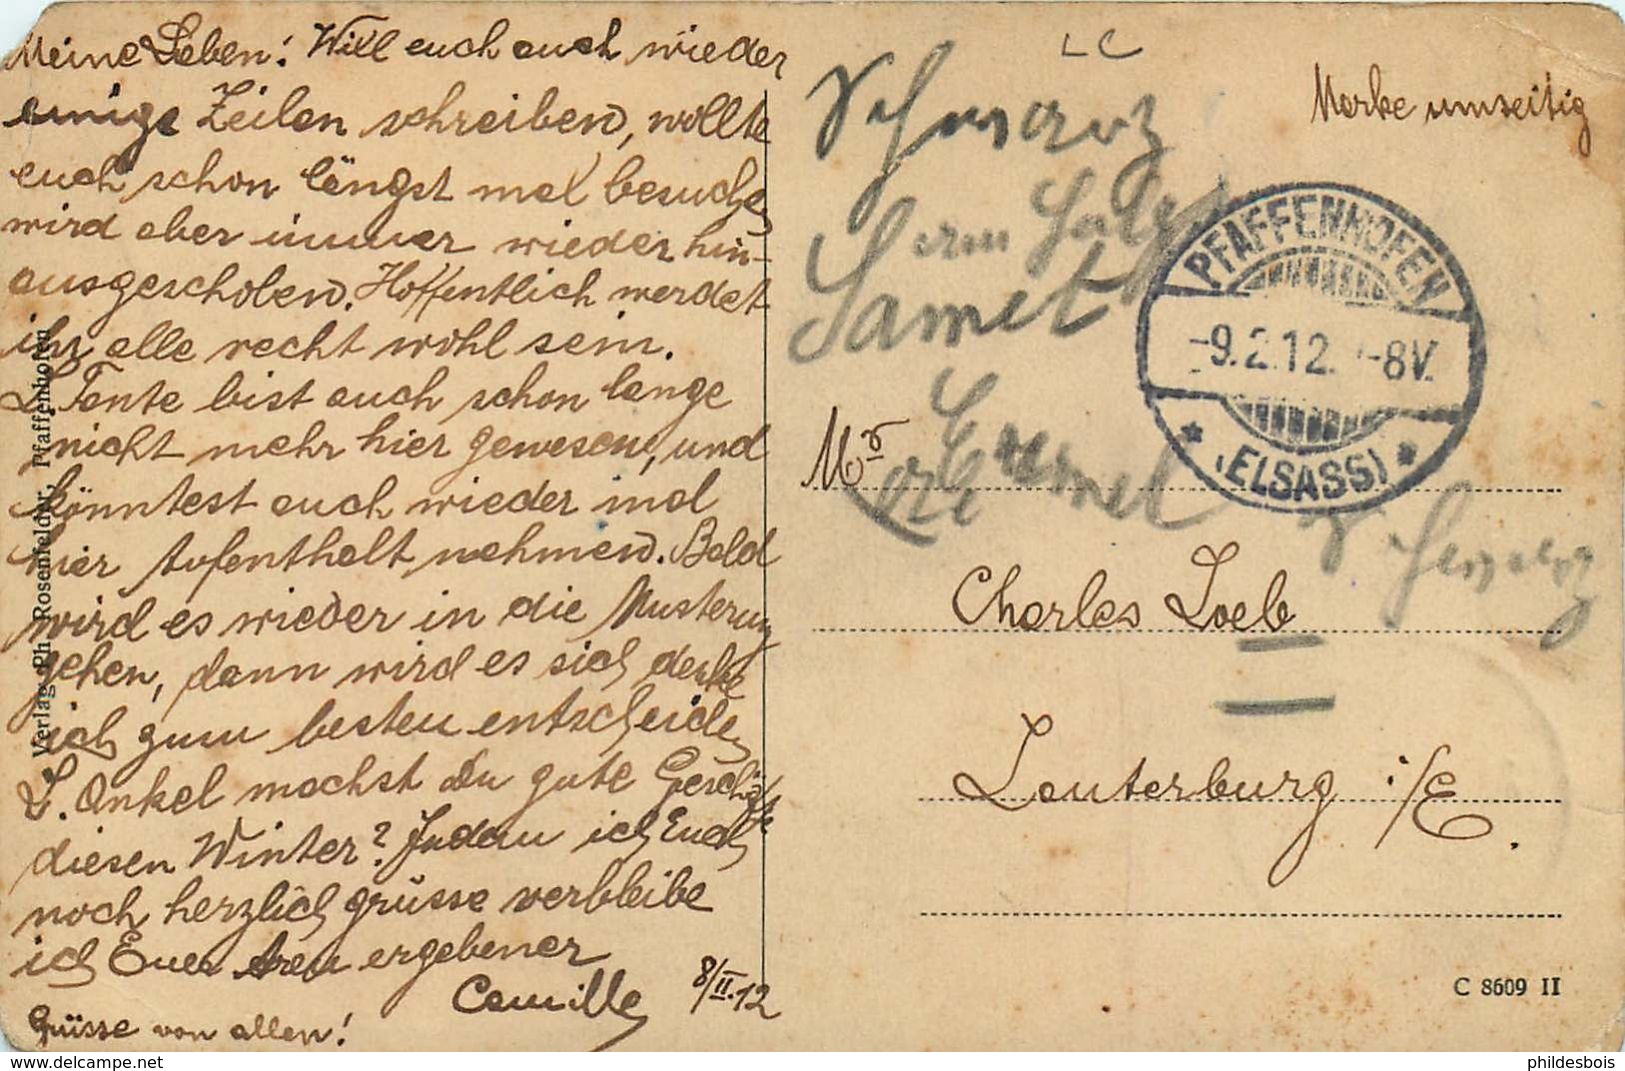 Meine Leben! Will euch auch wieder
einige Zeilen schreiben, wollte
euch schon längst mal besuchen
wird aber immer wieder hin-
ausgeschoben. Hoffentlich werdet
ihr alle recht wohl sein.
L. Tante bist auch schon lange
nicht mehr hier gewesen, und
könntest auch wieder mal
hier Aufenthalt nehmen. Bald
wird es wieder in die Musterung
gehen, dann wird es sich denke
ich zum besten entscheiden
L. Onkel machst du gute Geschäfte
diesen Winter? Indem ich Euch
noch herzlich grüsse verbleibe
ich Euer treu ergebener
Camille 8/II.12
Grüsse von allen!
Verlag Ph. Rosenfelder, Pfaffenhofen
LC
Marke umseitig
Schwarz
Samet
PFAFFENHOFEN
-9.2.12. -8V.
(ELSASS)
Mr
Charles Loeb
Lauterburg i/E.
C 8609 II
phildesbois
www.delcampe.net